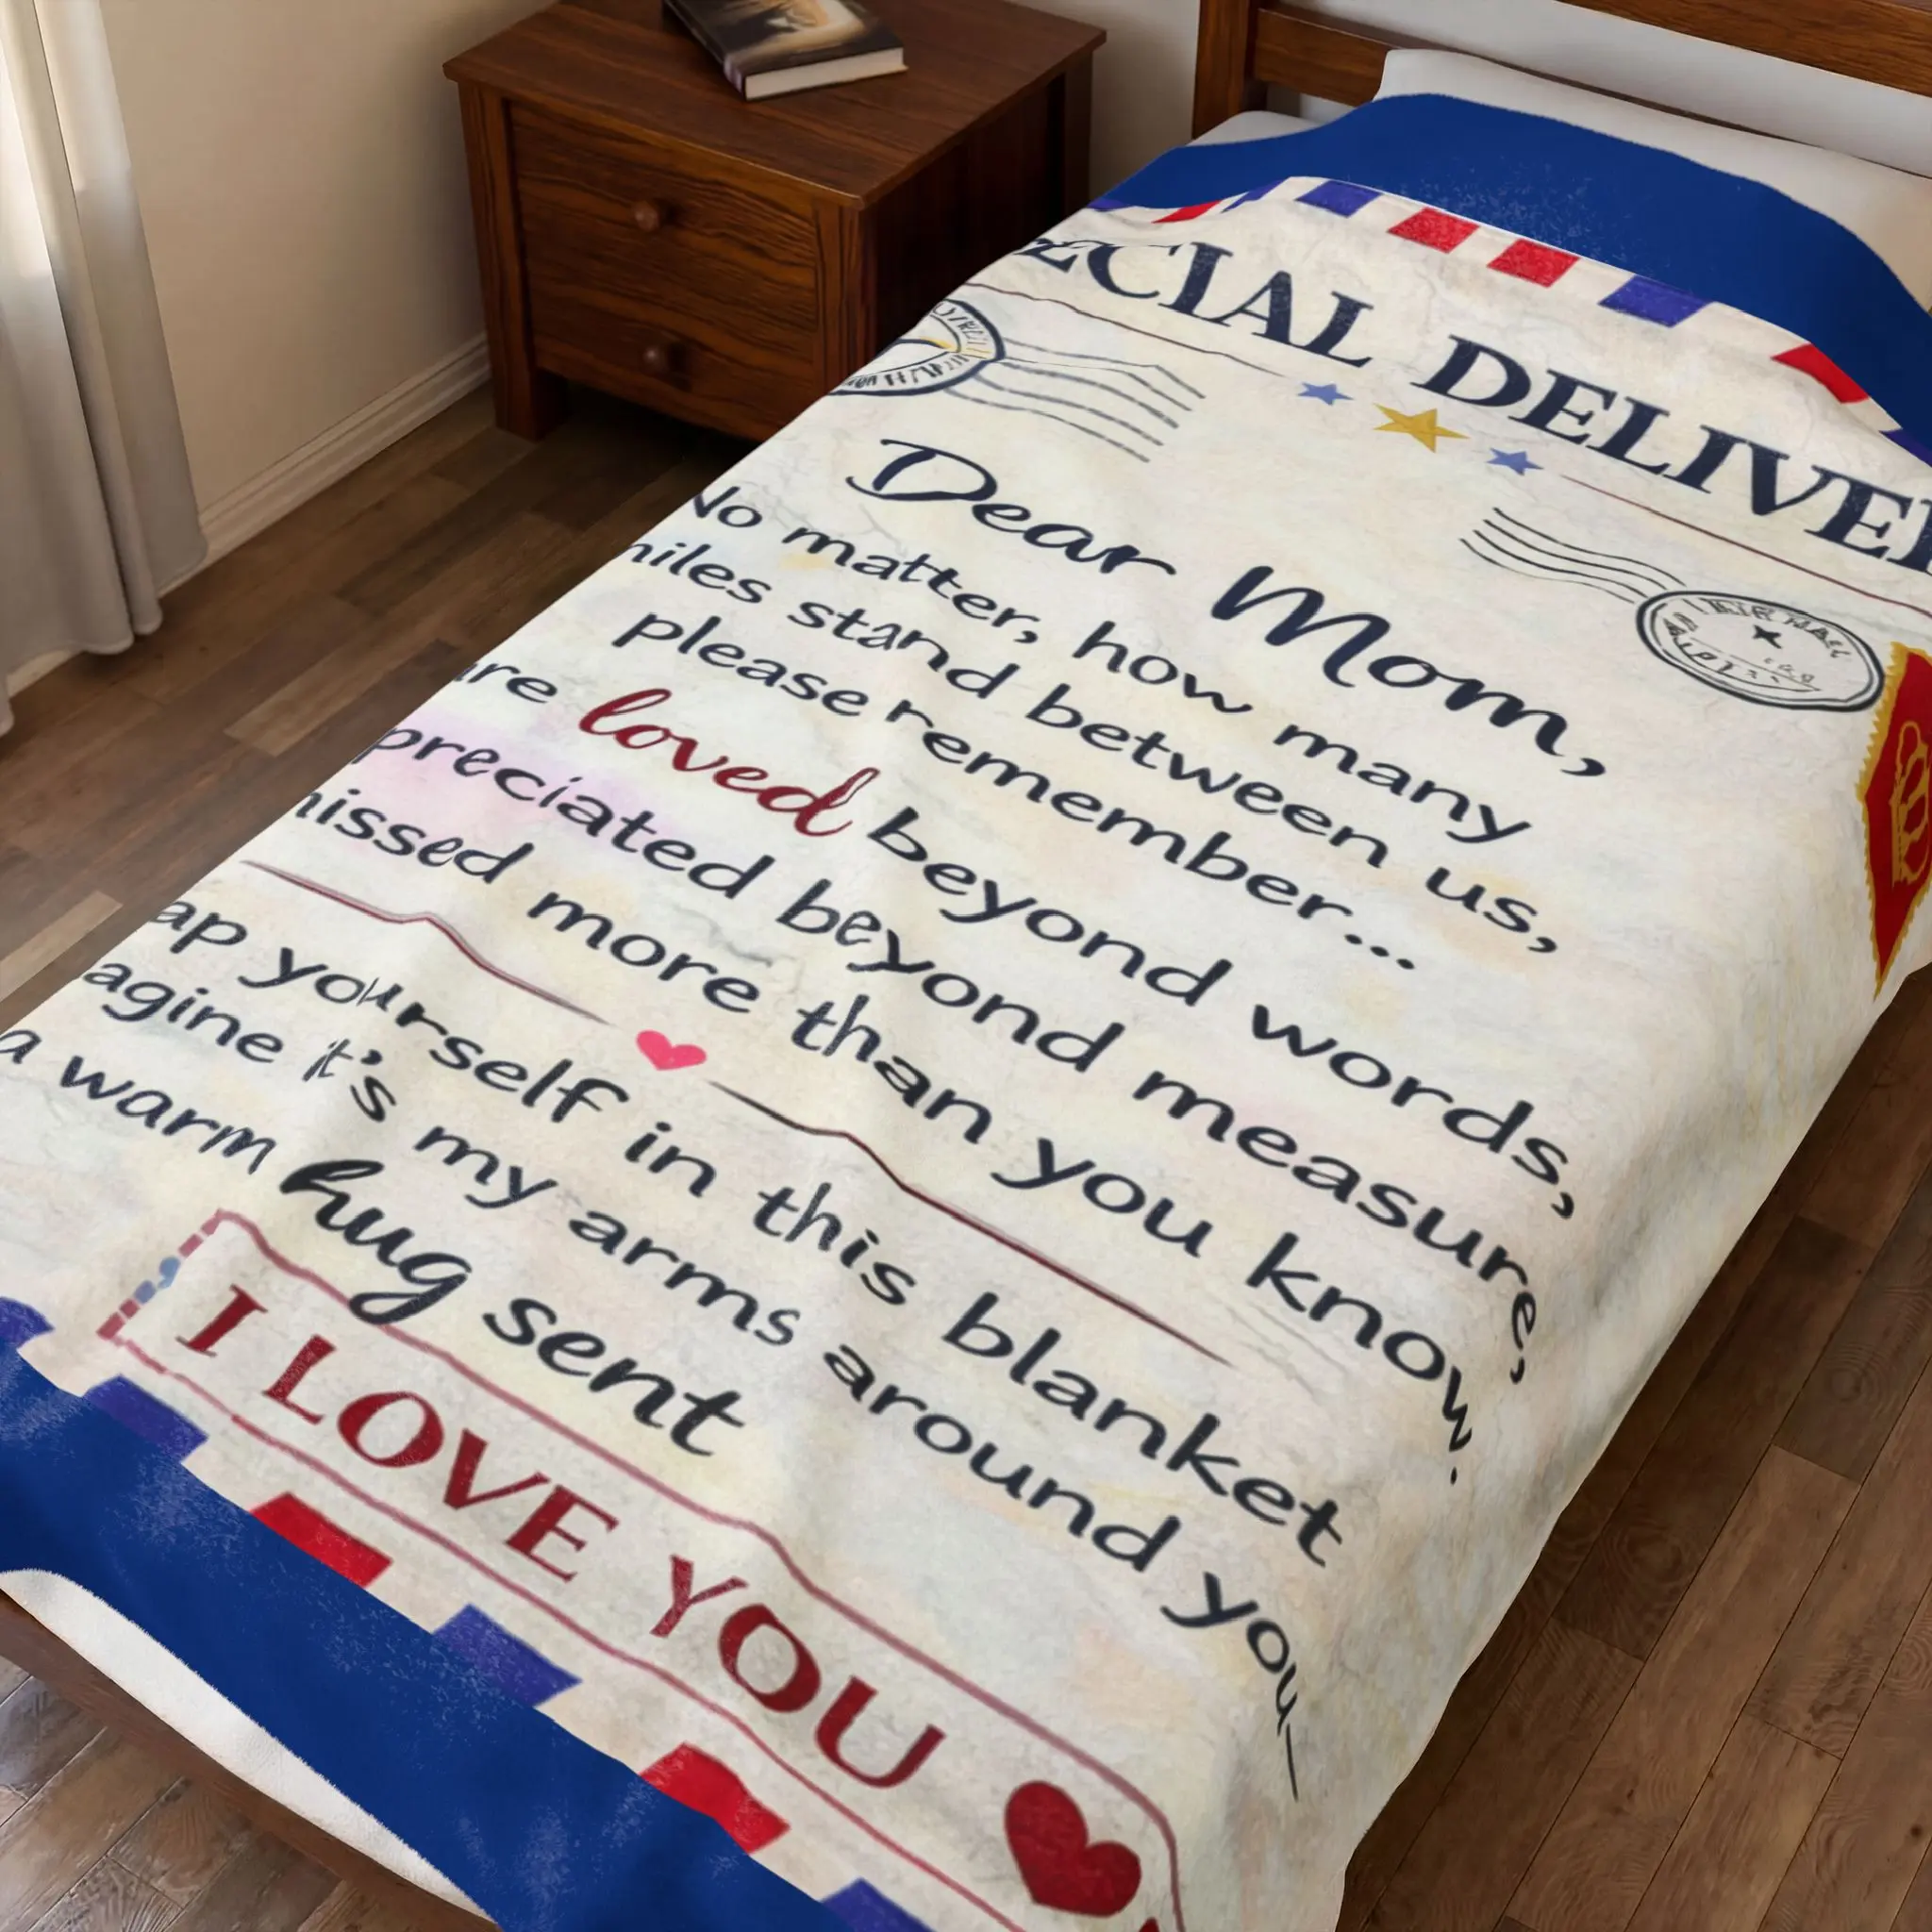 ECIAL DELIVER
Dear Mom,
No matter, how many
miles stand between us,
please remember...
are loved beyond words,
preciated beyond measure,
missed more than you know.
ap yourself in this blanket
agine it's my arms around you—
a warm hug sent
I LOVE YOU